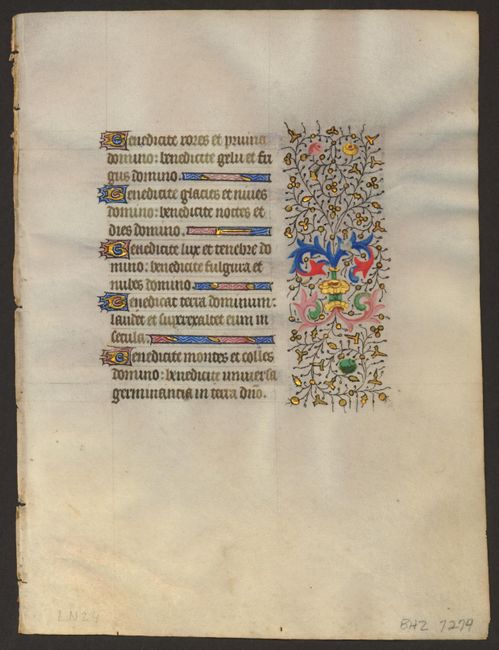 Benedicite rores et pruina
domino: benedicite gelu et fri
gus domino.
Benedicite glacies et nives
domino: benedicite noctes et
dies domino.
Benedicite lux et tenebre do
mino: benedicite fulgura et
nubes domino
Benedicat terra dominum:
laudet et superexaltet eum in
secula.
Benedicite montes et colles
domino: benedicite universa
germinantia in terra dño.
LN24 BHZ 7279